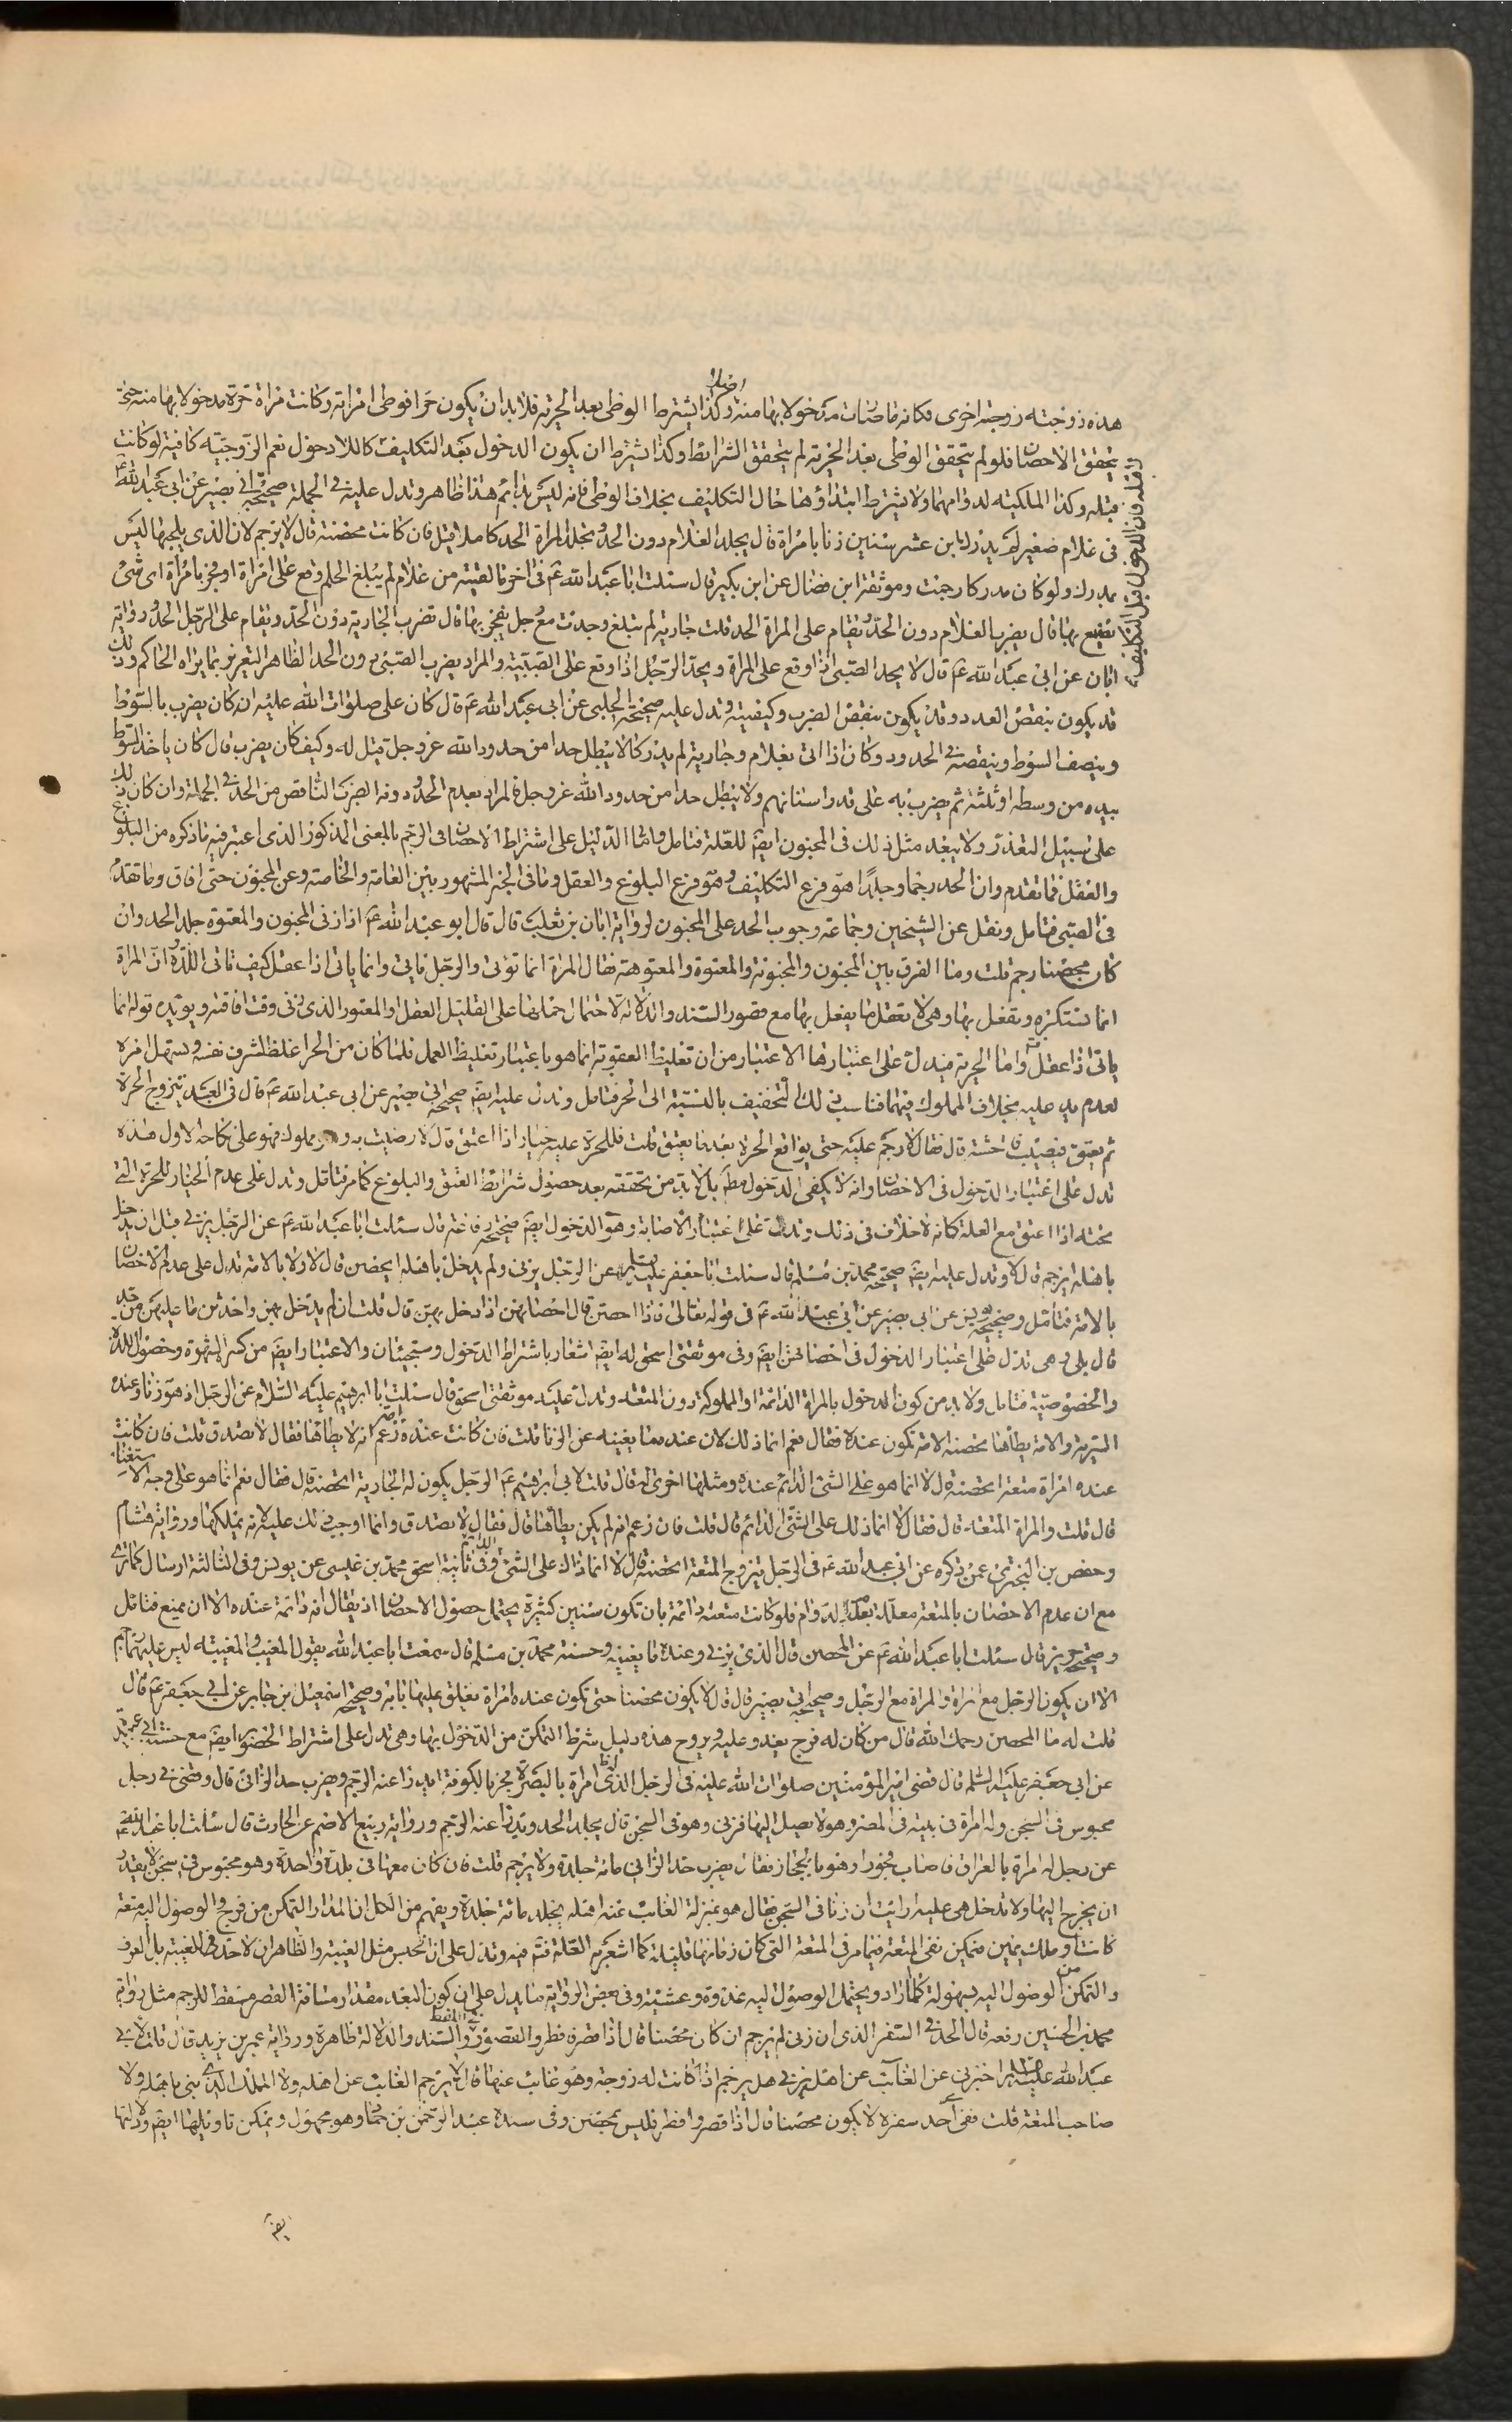 هذه زوجته زوجة اخرى فكانه ما كانت مدخولا بها منه وكذا يشترط الوطى بعد الحرية فلا بد ان يكون حرا فوطى امراته وكانت مراة حرة مدخولا بها منه حتى
يتحقق الاحصان فلو لم يتحقق الوطى بعد الحرية لم يتحقق الشرائط وكذا اشترط ان يكون الدخول بعد التكليف كاللادخول نعم الزوجية كافية لو كانت
قبله وكذا الملكية لدوامهما ولا يشترط ابتداؤهما حال التكليف بخلاف الوطى فانه ليس بدائم هذا ظاهر وتدل عليه فى الجملة صحيحة ابى بصير عن ابى عبد الله ع
فى غلام صغير لم يدرك ابن عشر سنين زنا بامراة قال يجلد الغلام دون الحد وتجلد المراة الحد كاملا قيل فان كانت محصنة قال لا يرجم لان الذى يلجمها ليس
بمدرك ولو كان مدركا رجمت وموثقة ابن فضال عن ابن بكير قال سئلت ابا عبد الله ع فى اخر ما لقيته من غلام لم يبلغ الحلم وقع على امراة او فجر بامراة اى شىء
يصنع بها قال يضرب الغلام دون الحد ويقام على المراة الحد قلت جارية لم تبلغ وجدت مع رجل يفجر بها قال تضرب الجارية دون الحد ويقام على الرجل الحد ورواية
ابان عن ابى عبد الله ع قال لا يحد الصبى اذا وقع على المراة ويحد الرجل اذا وقع على الصبية والمراد بضرب الصبى دون الحد الظاهر التعزير بما يراه الحاكم وذلك
قد يكون بنقص العدد وقد يكون بنقص الضرب وكيفيته وتدل عليه صحيحة الحلبى عن ابى عبد الله ع قال كان على صلوات الله عليه انه كان يضرب بالسوط
وبنصف السوط وببعضه فى الحدود وكان اذا اتى بغلام وجارية لم يدركا لا يبطل حدا من حدود الله عز وجل قيل له وكيف كان يضرب قال كان ياخذ السوط
بيده من وسطه او ثلثه ثم يضرب به على قدر اسنانهم ولا يبطل حدا من حدود الله عز وجل فالمراد بعدم الحد ودونه الضرب الناقص من الحد فى الجملة وان كان ذلك
على سبيل التعذر ولا يبعد مثل ذلك فى المجنون ايضا للعلة فتامل واما الدليل على اشتراط الاحصان فى الرجم بالمعنى المذكور الذى اعتبر فيه ما ذكره من البلوغ
والعقل فما تقدم وان الحد رجما وجلدا هو فرع التكليف وهو فرع البلوغ والعقل وما فى الخبر المشهور بين العامة والخاصة وعن المجنون حتى افاق وما تقدم
فى الصبى فتامل ونقل عن الشيخين وجماعة وجوب الحد على المجنون لرواية ابان بن تغلب قال قال ابو عبد الله ع اذا زنى المجنون والمعتوه جلد الحد وان
كان محصنا رجم قلت وما الفرق بين المجنون والمجنونة والمعتوه والمعتوهة فقال المراة انما توتى والرجل ياتى وانما ياتى اذا عقل كيف ياتى اللذة وان المراة
انما تستكره وتفعل بها وهى لا تعقل ما يفعل بها مع قصور السند والدلالة لاحتمال حملها على القليل العقل او المعتور الذى زنى وقت افاقته ويؤيده قوله انما
ياتى اذا عقل واما الحرية فيدل على اعتبارها الاعتبار من ان تغليظ العقوبة انما هو باعتبار تغليظ العمل فلما كان من الحر اغلظ لشرف نفسه ويسهل امره
لعدم يد عليه بخلاف المملوك فيهما فناسب ذلك التخفيف بالنسبة الى الحر فتامل وتدل عليه ايضا صحيحة ابى بصير عن ابى عبد الله ع قال فى العبد يتزوج الحرة
ثم يعتق فيصيب فاحشة قال فقال لا رجم عليه حتى يواقع الحرة بعد ما يعتق قلت فللحرة عليه خيار اذا اعتق قال لا رضيت به وهو مملوك فهو على نكاحه الاول هذه
تدل على اعتبار الدخول فى الاحصان وانه لا يكفى الدخول مطلقا بل لا بد من تحققه بعد حصول شرائط العتق والبلوغ كما مر فتامل وتدل على عدم الخيار للحرة التى
تحته اذا اعتق مع العلة كانه لا خلاف فى ذلك وتدل على اعتبار الاصابة وهو الدخول ايضا صحيحة رفاعة قال سئلت ابا عبد الله ع عن الرجل يزنى قبل ان يدخل
باهله ايرجم قال لا وتدل عليه ايضا صحيحة محمد بن مسلم قال سئلت ابا جعفر عليه السلام عن الرجل يزنى ولم يدخل باهله ايحصن قال لا ولا بالامة تدل على عدم الاحصان
بالامة فتامل وصحيحة حريز عن ابى بصير عن ابى عبد الله ع فى قوله تعالى فاذا احصن قال احصانهن اذا دخل بهن قال قلت ان لم يدخل بهن واحدثن ما عليهن من حد
قال بلى وهى تدل على اعتبار الدخول فى احصانهن ايضا وفى موثقتى اسحق له ايضا اشعار باشتراط الدخول وستجيئان والاعتبار ايضا من كسر الشهوة وحصول اللذة
والخصوصية فتامل ولا بد من كون الدخول بالمراة الدائمة او المملوكة دون المتعة وتدل عليه موثقتى اسحق قال سئلت ابا ابرهيم عليه السلام عن الرجل اذ هو زنا وعنده
السرية والامة يطأها تحصنه الامة تكون عنده فقال نعم انما ذلك لان عنده ما يغنيه عن الزنا قلت فان كانت عنده امة زعم انه لا يطأها فقال لا يصدق قلت فان كانت
عنده امراة متعة اتحصنه قال لا انما هو على الشىء الدائم عنده ومثلها اخرى له قال قلت لابى ابرهيم ع الرجل يكون له الجارية اتحصنه قال فقال نعم انما هو على وجه الاستغناء
قال قلت والمراة المتعة قال فقال لا انما ذلك على الشىء الدائم قال قلت فان زعم انه لم يكن يطأها قال فقال لا يصدق وانما اوجب ذلك عليه لانه يملكها ورواية هشام
وحفص بن البخترى عمن ذكره عن ابى عبد الله ع فى الرجل يتزوج المتعة اتحصنه قال لا انما ذاك على الشىء الدائم وفى ثانية اسحق محمد بن عيسى عن يونس وفى الثالثة ارسال كما ترى
مع ان عدم الاحصان بالمتعة معللة بعدم الدوام فلو كانت متعته دائمة بان تكون سنين كثيرة يحتمل حصول الاحصان اذ يقال انه دائمة عنده الا ان يمنع فتامل
وصحيحة حريز قال سئلت ابا عبد الله ع عن المحصن قال الذى يزنى وعنده ما يغنيه وحسنة محمد بن مسلم قال سمعت ابا عبد الله يقول المغيب والمغيبة ليس عليهما رجم
الا ان يكون الرجل مع المراة والمراة مع الرجل وصحيحة ابى بصير قال قال لا يكون محصنا حتى تكون عنده امراة يغلق عليها بابه وصحيحة اسمعيل بن جابر عن ابى جعفر ع قال
قلت له ما المحصن رحمك الله قال من كان له فرج يغدو عليه ويروح هذه دليل شرط التمكن من الدخول بها وهى تدل على اشتراط الحضور ايضا مع حسنة ابى عبيدة
عن ابى جعفر عليه السلم قال قضى امير المؤمنين صلوات الله عليه فى الرجل الذى له امراة بالبصرة فجر بالكوفة ان يدرا عنه الرجم ويضرب حد الزانى قال وقضى فى رجل
محبوس فى السجن وله امراة فى بيته فى المصر وهو لا يصل اليها فزنى وهو فى السجن قال يجلد الحد ويدرا عنه الرجم ورواية ربيع الاصم عن الحارث قال سئلت ابا عبد الله ع
عن رجل له امراة بالعراق فاصاب فجورا وهو بالحجاز فقال يضرب حد الزانى مائة جلدة ولا يرجم قلت فان كان معها فى بلدة واحدة وهو محبوس فى سجن لا يقدر
ان يخرج اليها ولا تدخل هى عليه ارايت ان زنا فى السجن فقال هو بمنزلة الغائب عنه اهله يجلد مائة جلدة ويفهم من الكل ان المدار التمكن من فرج والوصول اليه متعة
كانت او ملك يمين فيمكن نفى المتعة فيما مر فى المتعة التى كان زمانها قليلة كما اشعر به العلة فتنبه وتدل على ان الحبس مثل الغيبة والظاهر ان لا حد فى الغيبة بل العرف
والتمكن من الوصول اليه بسهولة كلما اراد ويحتمل الوصول اليه غدوة وعشية وفى بعض الرواية ما يدل على ان كون البعد مقدار مسافة القصر مسقط للرجم مثل رواية
محمد بن الحسين رفعه قال الحد فى السفر الذى ان زنى لم يرجم ان كان محصنا قال اذا قصر فافطر والقصور فى السند والدلالة ظاهرة ورواية عمر بن يزيد قال قلت لابى
عبد الله عليه السلم اخبرنى عن الغائب عن اهله يزنى هل يرجم اذا كانت له زوجة وهو غائب عنها قال لا يرجم الغائب عن اهله ولا المملك الذى لم يبن باهله ولا
صاحب المتعة قلت ففى اى حد سفره لا يكون محصنا قال اذا قصر وافطر فليس بمحصن وفى سنده عبد الرحمن بن حماد وهو مجهول ويمكن تاويلها ايضا ولا انها